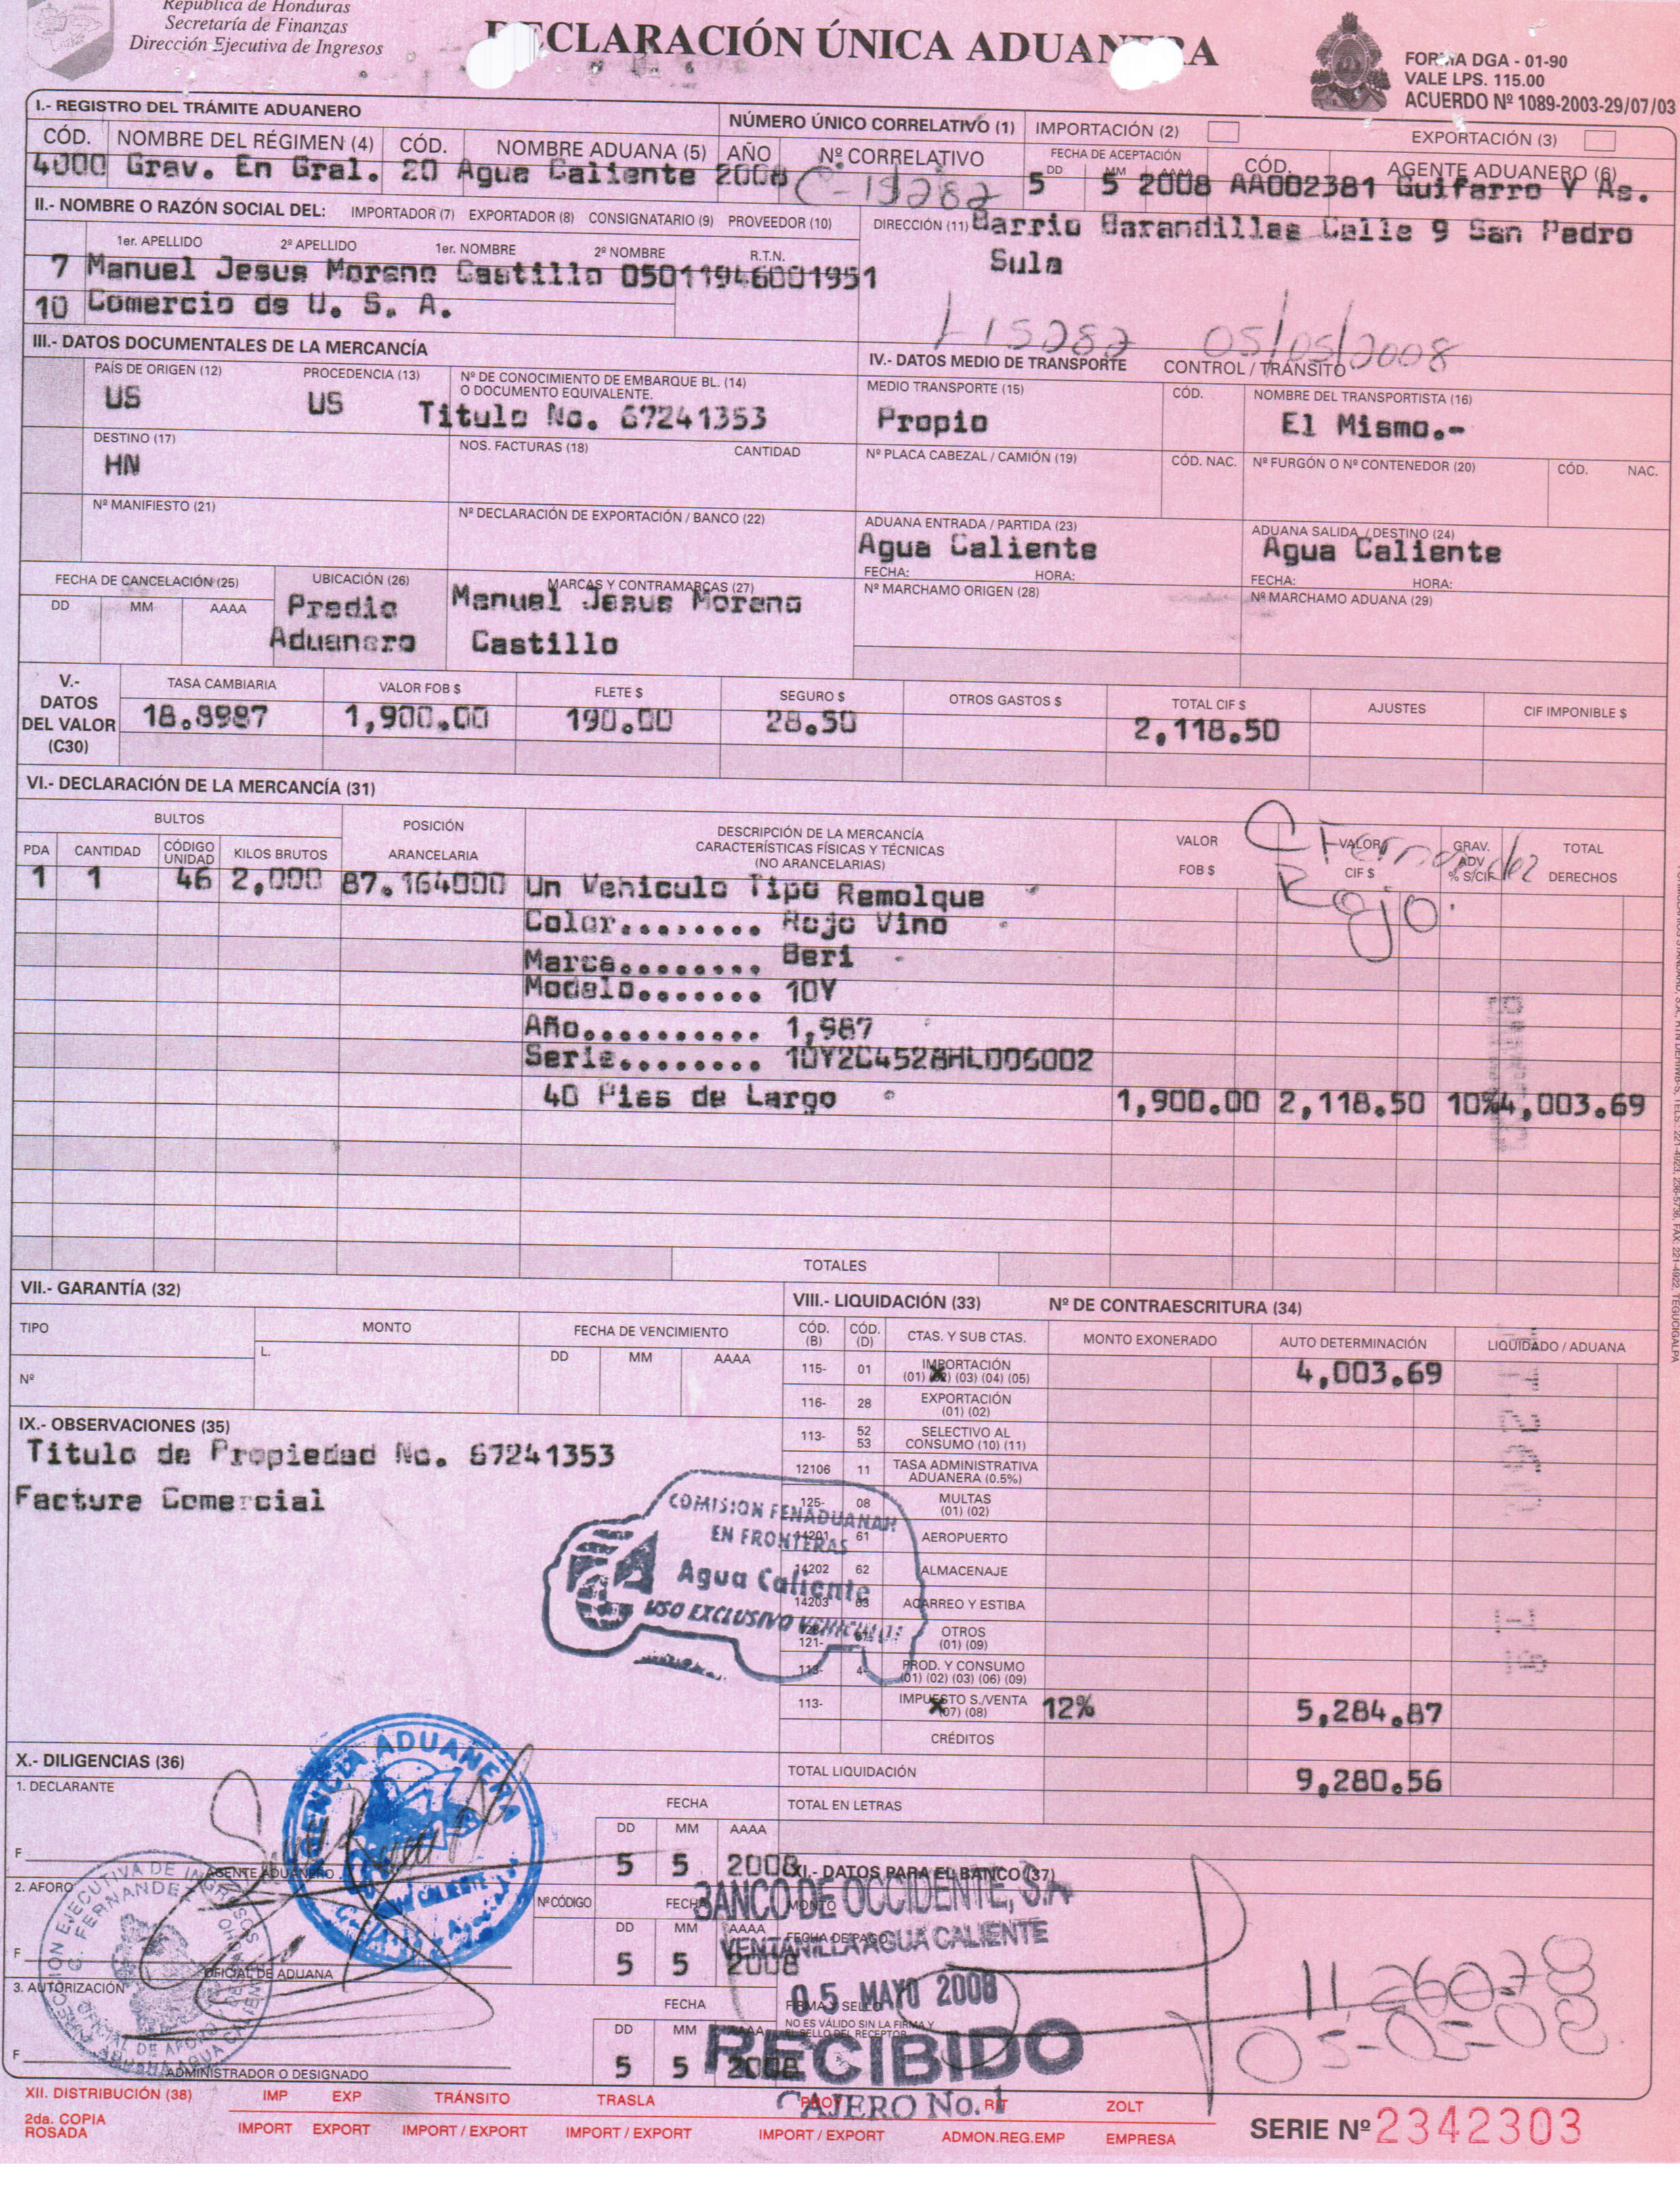 República de Honduras
Secretaría de Finanzas
Dirección Ejecutiva de Ingresos
DECLARACIÓN ÚNICA ADUANERA
FORMA DGA - 01-90
VALE LPS. 115.00
ACUERDO Nº 1089-2003-29/07/03
I.- REGISTRO DEL TRÁMITE ADUANERO
NÚMERO ÚNICO CORRELATIVO (1) IMPORTACIÓN (2) EXPORTACIÓN (3)
CÓD. NOMBRE DEL RÉGIMEN (4) CÓD. NOMBRE ADUANA (5) AÑO Nº CORRELATIVO FECHA DE ACEPTACIÓN DD MM AAAA CÓD. AGENTE ADUANERO (6)
4000 Grav. En Gral. 20 Agua Caliente 2008 C-15282 5 5 2008 AA002381 Guifarro Y As.
II.- NOMBRE O RAZÓN SOCIAL DEL: IMPORTADOR (7) EXPORTADOR (8) CONSIGNATARIO (9) PROVEEDOR (10) DIRECCIÓN (11) Barrio Barandillas Calle 9 San Pedro
Sula
1er. APELLIDO 2º APELLIDO 1er. NOMBRE 2º NOMBRE R.T.N.
7 Manuel Jesus Moreno Castillo 05011946001951
10 Comercio de U. S. A.
L-15282 05/05/2008
III.- DATOS DOCUMENTALES DE LA MERCANCÍA
IV.- DATOS MEDIO DE TRANSPORTE CONTROL / TRÁNSITO
PAÍS DE ORIGEN (12) PROCEDENCIA (13) Nº DE CONOCIMIENTO DE EMBARQUE BL. (14)
O DOCUMENTO EQUIVALENTE.
MEDIO TRANSPORTE (15) CÓD. NOMBRE DEL TRANSPORTISTA (16)
US US Titulo No. 67241353 Propio El Mismo.-
DESTINO (17) NOS. FACTURAS (18) CANTIDAD Nº PLACA CABEZAL / CAMIÓN (19) CÓD. NAC. Nº FURGÓN O Nº CONTENEDOR (20) CÓD. NAC.
HN
Nº MANIFIESTO (21) Nº DECLARACIÓN DE EXPORTACIÓN / BANCO (22) ADUANA ENTRADA / PARTIDA (23) ADUANA SALIDA / DESTINO (24)
Agua Caliente Agua Caliente
FECHA: HORA: FECHA: HORA:
FECHA DE CANCELACIÓN (25) UBICACIÓN (26) MARCAS Y CONTRAMARCAS (27) Nº MARCHAMO ORIGEN (28) Nº MARCHAMO ADUANA (29)
DD MM AAAA Predio Manuel Jesus Moreno
Aduanero Castillo
V.- DATOS DEL VALOR (C30)
TASA CAMBIARIA VALOR FOB $ FLETE $ SEGURO $ OTROS GASTOS $ TOTAL CIF $ AJUSTES CIF IMPONIBLE $
18.8987 1,900.00 190.00 28.50 2,118.50
VI.- DECLARACIÓN DE LA MERCANCÍA (31)
BULTOS
PDA CANTIDAD CÓDIGO UNIDAD KILOS BRUTOS POSICIÓN ARANCELARIA DESCRIPCIÓN DE LA MERCANCÍA
CARACTERÍSTICAS FÍSICAS Y TÉCNICAS
(NO ARANCELARIAS)
VALOR FOB $ VALOR CIF $ GRAV. ADV % S/CIF TOTAL DERECHOS
C Fernandez
Rojo.
1 1 46 2,000 87.164000 Un Vehiculo Tipo Remolque
Color........ Rojo Vino
Marca......... Beri
Modelo........ 10Y
Año........... 1,987
Serie......... 1DY2C4528HL006002
40 Pies de Largo 1,900.00 2,118.50 10% 4,003.69
TOTALES
VII.- GARANTÍA (32)
TIPO MONTO FECHA DE VENCIMIENTO
L. DD MM AAAA
Nº
VIII.- LIQUIDACIÓN (33) Nº DE CONTRAESCRITURA (34)
CÓD. (B) CÓD. (D) CTAS. Y SUB CTAS. MONTO EXONERADO AUTO DETERMINACIÓN LIQUIDADO / ADUANA
115- 01 IMPORTACIÓN (01) (02) (03) (04) (05) 4,003.69
116- 28 EXPORTACIÓN (01) (02)
113- 52 53 SELECTIVO AL CONSUMO (10) (11)
12106 11 TASA ADMINISTRATIVA ADUANERA (0.5%)
125- 08 MULTAS (01) (02)
14201 61 AEROPUERTO
14202 62 ALMACENAJE
14203 63 ACARREO Y ESTIBA
121- OTROS (01) (09)
113- 4- PROD. Y CONSUMO (01) (02) (03) (06) (09)
113- IMPUESTO S./VENTA (07) (08) 12% 5,284.87
CRÉDITOS
TOTAL LIQUIDACIÓN 9,280.56
TOTAL EN LETRAS
IX.- OBSERVACIONES (35)
Titulo de Propiedad No. 67241353
Factura Comercial
COMISION FENADUANAH
EN FRONTERAS
Agua Caliente
USO EXCLUSIVO VEHICULOS
X.- DILIGENCIAS (36)
1. DECLARANTE
FECHA
DD MM AAAA
F AGENTE ADUANERO 5 5 2008
AGENCIA ADUANERA
AGUA CALIENTE
2. AFORO Nº CÓDIGO FECHA
DD MM AAAA
F OFICIAL DE ADUANA 5 5 2008
3. AUTORIZACIÓN FECHA
DD MM AAAA
F ADMINISTRADOR O DESIGNADO 5 5 2008
DIRECCION EJECUTIVA DE INGRESOS
C. FERNANDEZ
OFICIAL DE AFORO
ADUANA AGUA CALIENTE
XI.- DATOS PARA EL BANCO (37)
MONTO
FECHA DE PAGO
FIRMA Y SELLO
NO ES VÁLIDO SIN LA FIRMA Y
EL SELLO DEL RECEPTOR
BANCO DE OCCIDENTE, S.A
VENTANILLA AGUA CALIENTE
05 MAYO 2008
RECIBIDO
CAJERO No. 1
05-05-08
XII. DISTRIBUCIÓN (38) IMP EXP TRÁNSITO TRASLA PROV RIT ZOLT
2da. COPIA
ROSADA
IMPORT EXPORT IMPORT / EXPORT IMPORT / EXPORT IMPORT / EXPORT ADMON.REG.EMP EMPRESA
SERIE Nº 2342303